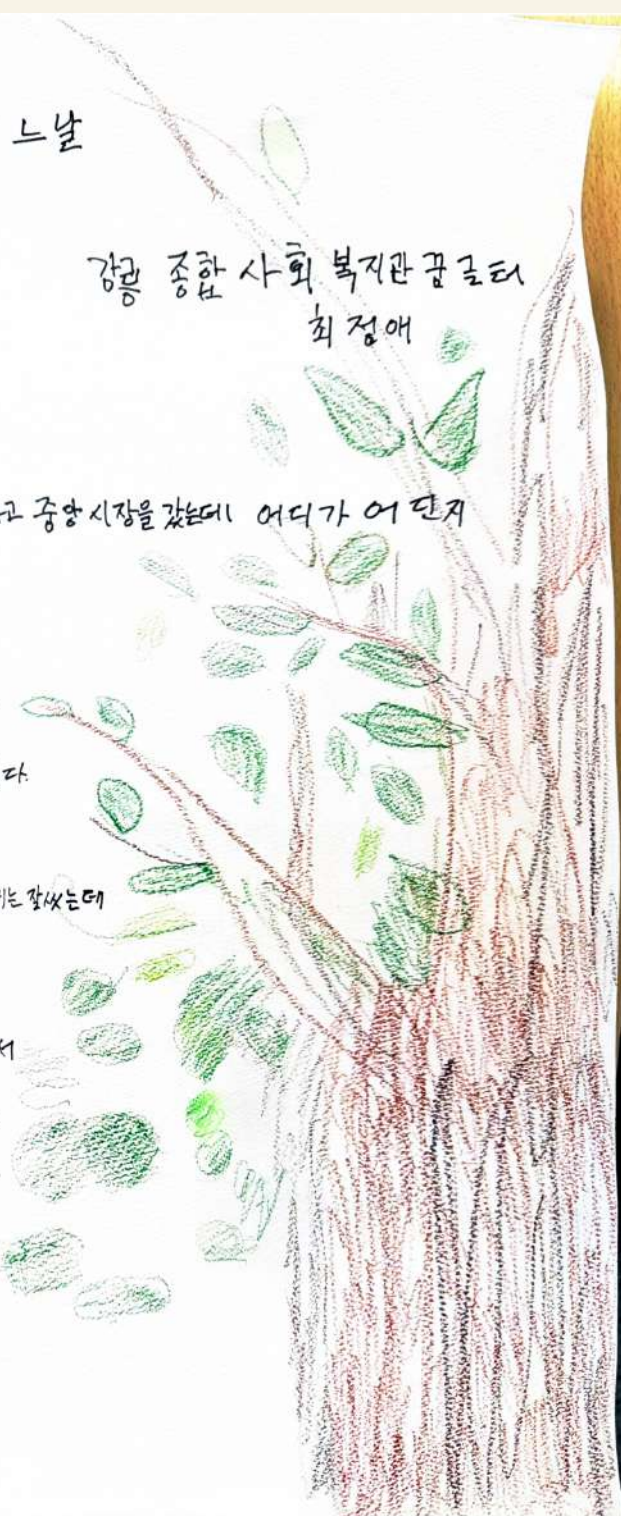 느날
강릉 종합 사회 복지관 꿈글터
최정애
고 중앙시장을 갔는데 어디가 어딘지
다.
는 잘썼는데
서